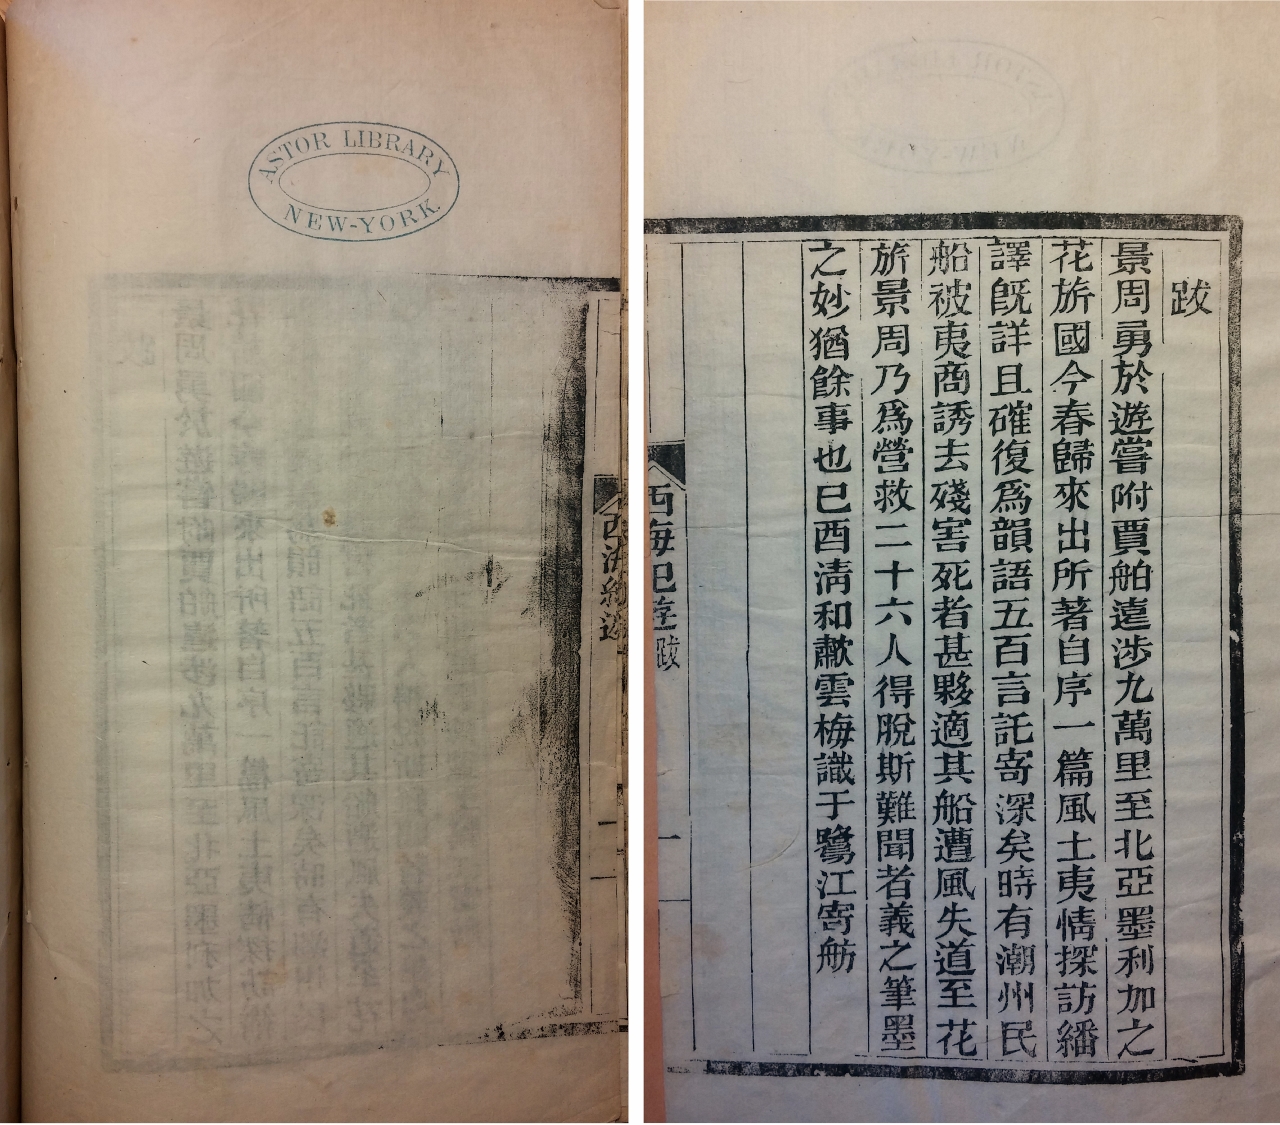 ASTOR LIBRARY
NEW-YORK.
西海紀遊
跋
景周勇於遊嘗附賈舶遠涉九萬里至北亞墨利加之
花旂國今春歸來出所著自序一篇風土夷情探訪繙
譯旣詳且確復爲韻語五百言託寄深矣時有潮州民
船被夷商誘去殘害死者甚夥適其船遭風失道至花
旂景周乃爲營救二十六人得脫斯難聞者義之筆墨
之妙猶餘事也已酉淸和歗雲梅識于鷺江寄舫
西海紀遊
跋
一